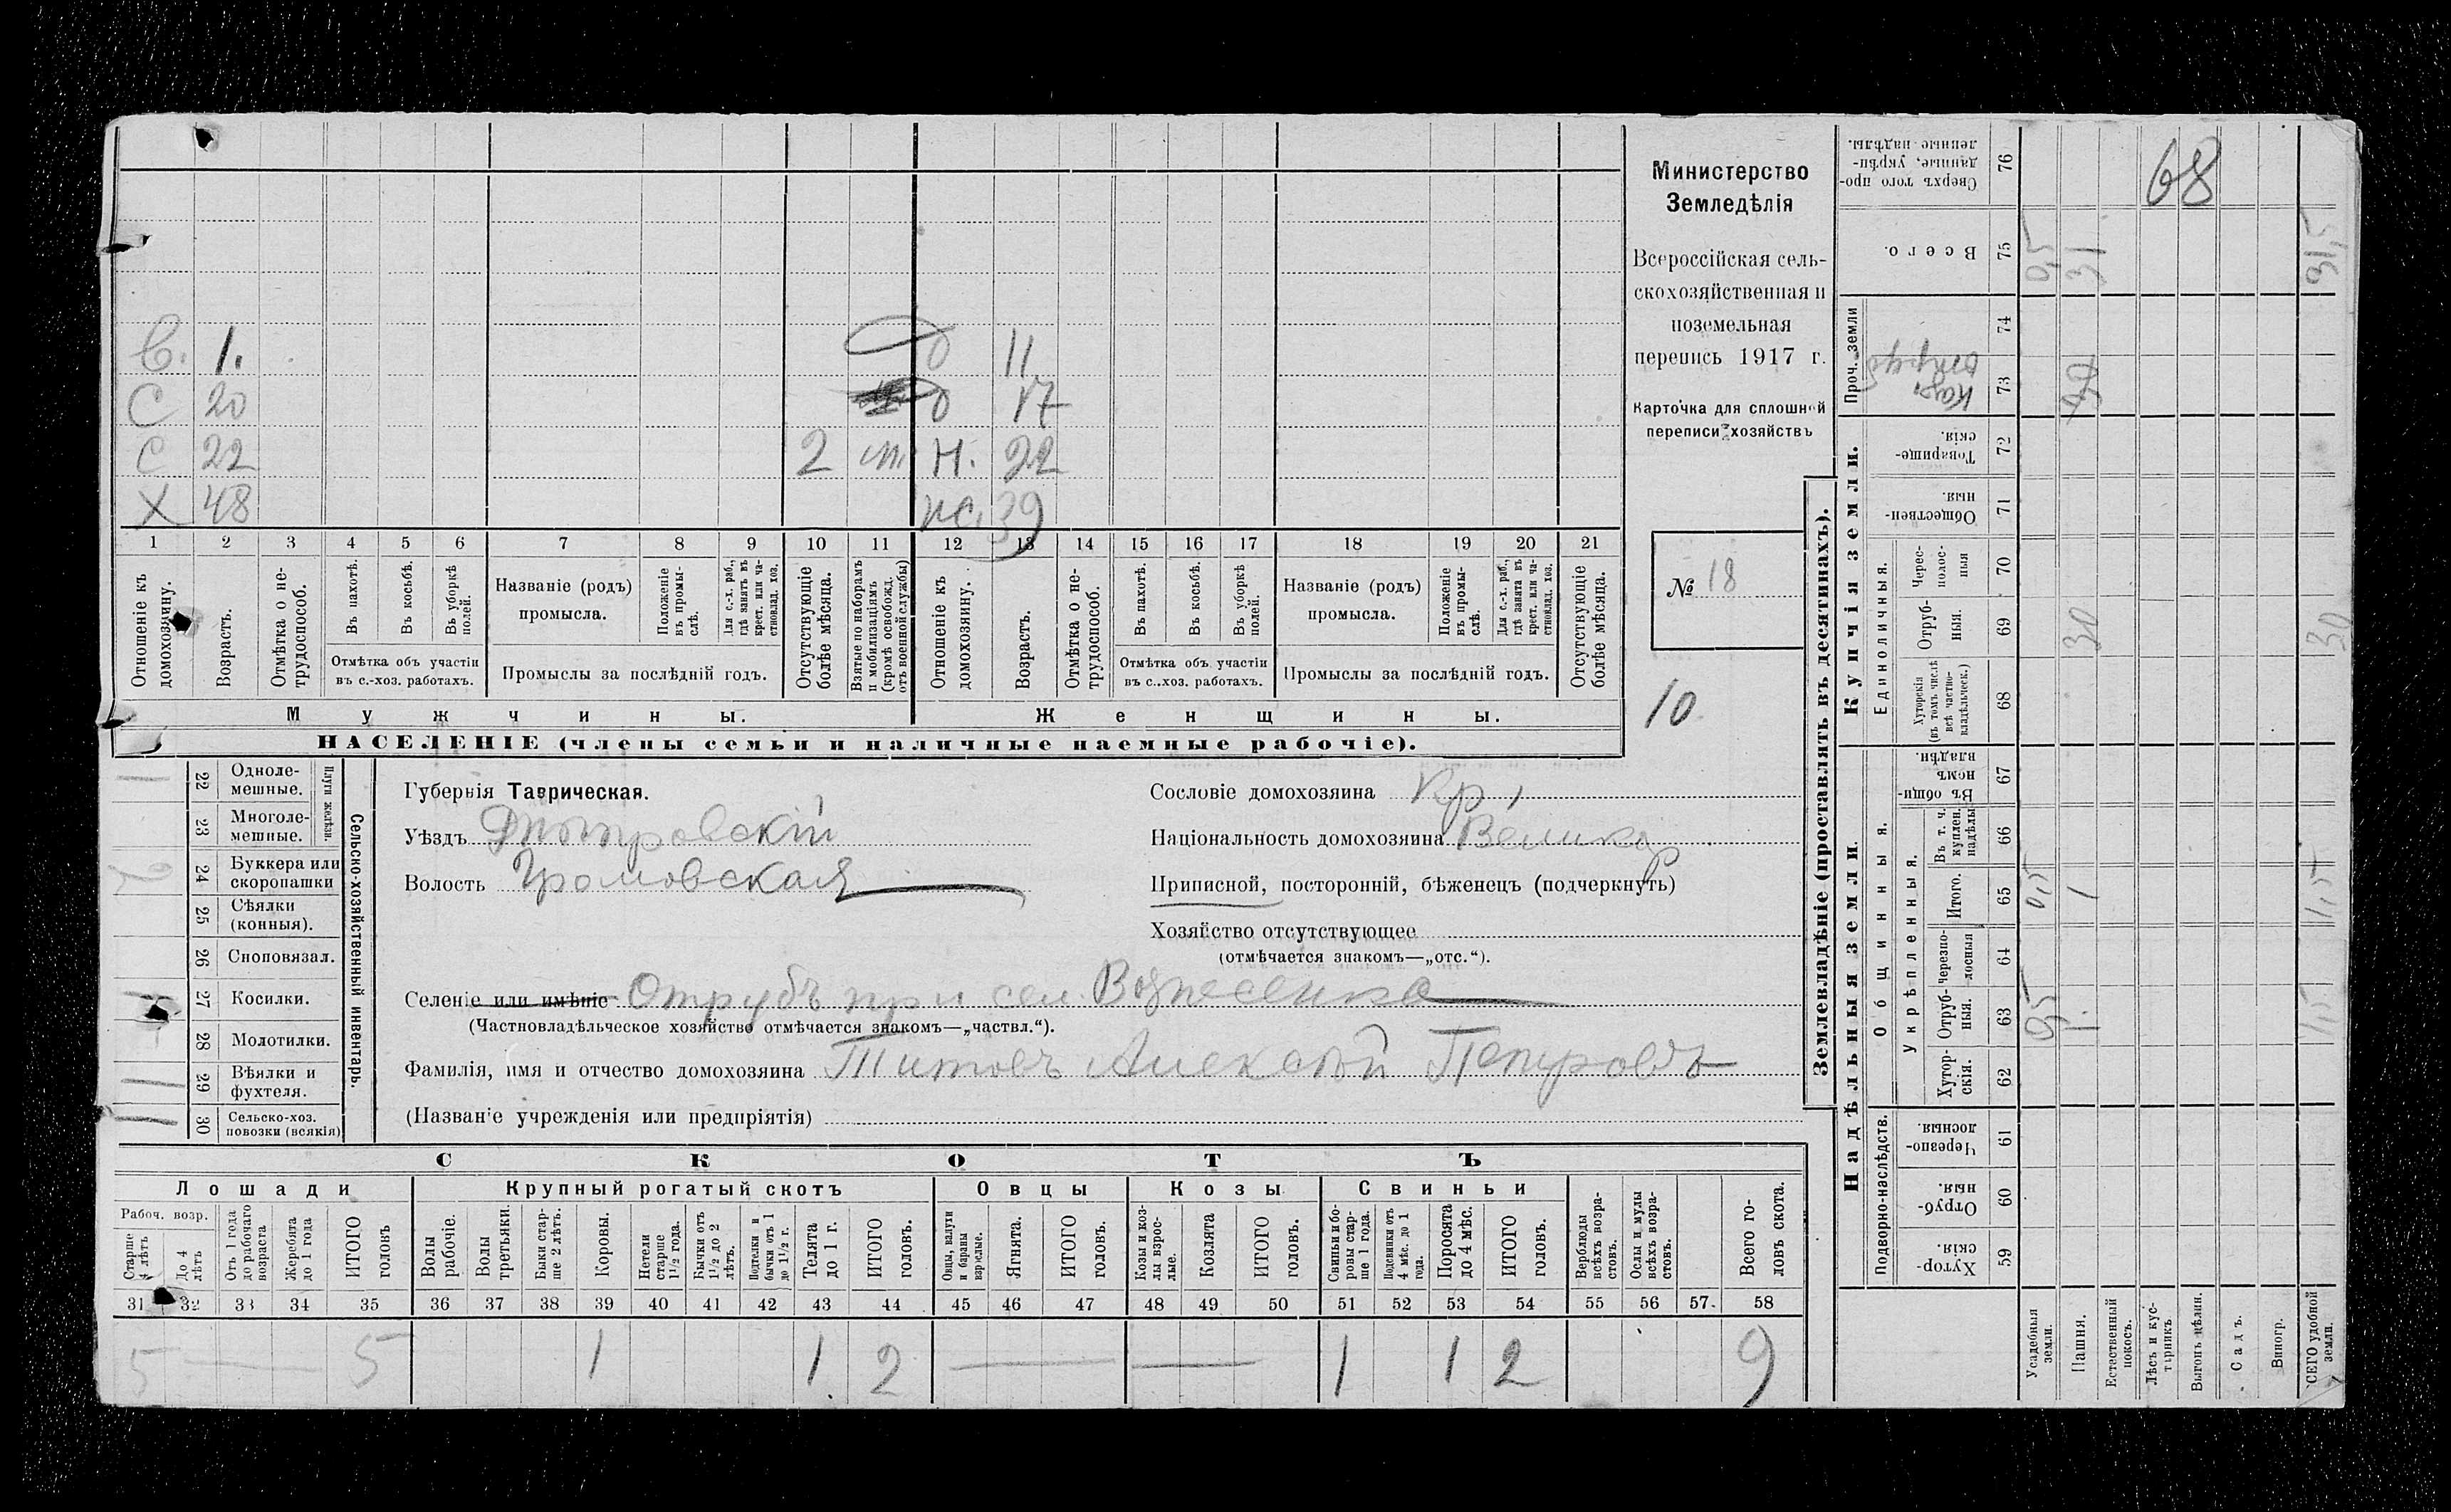 Министерство
Земледѣлія
Всероссійская сель-
скохозяйственная и
поземельная
перепись 1917 г.
Карточка для сплошной
переписи хозяйствъ
№ 18
10
С. 1. О 11
С 20 О 17
С 22 2 Н. 22
Х 48 39
1 2 3 4 5 6 7 8 9 10 11 12 13 14 15 16 17 18 19 20 21
Отношеніе къ домохозяину.
Возрастъ.
Отмѣтка о не-трудоспособ.
Въ пахотѣ.
Въ косьбѣ.
Въ уборкѣ полей.
Отмѣтка объ участіи
въ с.-хоз. работахъ.
Названіе (родъ)
промысла.
Положеніе въ промы-слѣ.
Для с.-х. раб., гдѣ занятъ въ крест. или ча-стновлад. хоз.
Промыслы за послѣдній годъ.
Отсутствующіе болѣе мѣсяца.
Взятые по наборамъ и мобилизаціямъ (кромѣ освобожд. отъ военной службы)
Отношеніе къ домохозяину.
Возрастъ.
Отмѣтка о не-трудоспособ.
Въ пахотѣ.
Въ косьбѣ.
Въ уборкѣ полей.
Отмѣтка объ участіи
въ с..хоз. работахъ.
Названіе (родъ)
промысла.
Положеніе въ промы-слѣ.
Для с.-х. раб., гдѣ занята въ крест. или ча-стновлад. хоз.
Промыслы за послѣдній годъ.
Отсутствующіе болѣе мѣсяца.
Мужчины. Женщины.
НАСЕЛЕНІЕ (члены семьи и наличные наемные рабочіе).
Сельско-хозяйственный инвентарь.
Плуги желѣзн.
22 Одноле-мешные.
23 Многоле-мешные.
24 Буккера или скоропашки
25 Сѣялки (конныя).
26 Сноповязал.
27 Косилки.
28 Молотилки.
29 Вѣялки и фухтеля.
30 Сельско-хоз. повозки (всякія)
Губернія Таврическая.
Уѣздъ Днѣпровскій
Волость Громовская
Сословіе домохозяина Кр,
Національность домохозяина Великор
Приписной, посторонній, бѣженецъ (подчеркнуть)
Хозяйство отсутствующее
(отмѣчается знакомъ—„отс.“).
Селеніе или имѣніе Отрубъ при сел. Вознесенка
(Частновладѣльческое хозяйство отмѣчается знакомъ—„частвл.“).
Фамилія, имя и отчество домохозяина Титовъ Алексѣй Петровъ
(Названіе учрежденія или предпріятія)
СКОТЪ
Лошади Крупный рогатый скотъ Овцы Козы Свиньи
Рабоч. возр.
Старше 4 лѣтъ
До 4 лѣтъ
Отъ 1 года до рабочаго возраста
Жеребята до 1 года
ИТОГО головъ
Волы рабочіе.
Волы третьяки.
Быки стар-ше 2 лѣтъ.
Коровы.
Нетели старше 1½ года.
Бычки отъ 1½ до 2 лѣтъ.
Подтелки и бычки отъ 1 до 1½ г.
Телята до 1 г.
ИТОГО головъ.
Овцы, валухи и бараны взрослые.
Ягнята.
ИТОГО головъ.
Козы и коз-лы взрос-лые.
Козлята
ИТОГО головъ.
Свиньи и бо-ровы стар-ше 1 года.
Подсвинки отъ 4 мѣс. до 1 года.
Поросята до 4 мѣс.
ИТОГО головъ.
Верблюды всѣхъ возра-стовъ.
Ослы и мулы всѣхъ возра-стовъ.
Всего го-ловъ скота.
31 32 33 34 35 36 37 38 39 40 41 42 43 44 45 46 47 48 49 50 51 52 53 54 55 56 57. 58
5 — 5 1 1 2 — — 1 1 2 9
Землевладѣніе (проставлять въ десятинахъ).
Купчія земли.
Надѣльныя земли.
Сверхъ того про-данные, укрѣп-ленные надѣлы. 76 68
Всего. 75 0,5 31 31,5
Проч. земли
74
73
Товарище-скія. 72
Обществен-ныя. 71
Единоличныя.
Черес-полос-ныя 70
Отруб-ныя. 69 30 30
Хуторскія (въ томъ числѣ всѣ частно-владѣльческ.) 68
Въ общин-номъ владѣн. 67
Общинныя.
Укрѣпленныя.
Въ т. ч. куплен. надѣлы 66
Итого. 65 0,5 1 1,5
Черезпо-лосныя 64
Отруб-ныя. 63 0,5 1. 1,5
Хутор-скія. 62
Подворно-наслѣдств.
Черезпо-лосныя. 61
Отруб-ныя. 60
Хутор-скія. 59
Усадебныя земли.
Пашня.
Естественный покосъ.
Лѣсъ и кус-тарникъ
Выгонъ цѣлин.
Садъ.
Виногр.
ВСЕГО удобной земли.